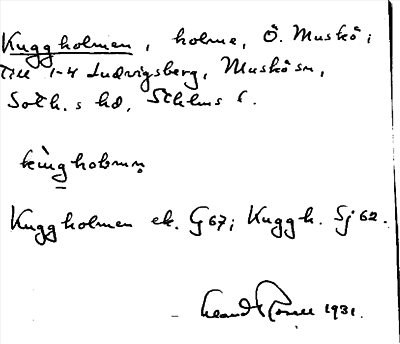 Kuggholmen, holme, Ö. Muskö i
till 1-4 Ludvigsberg, Muskö sn,
Soth.s hd, Sthlms l.
kùgholmən
Kuggholmen ek. G 67; Kuggh. Sj 62.
1931.